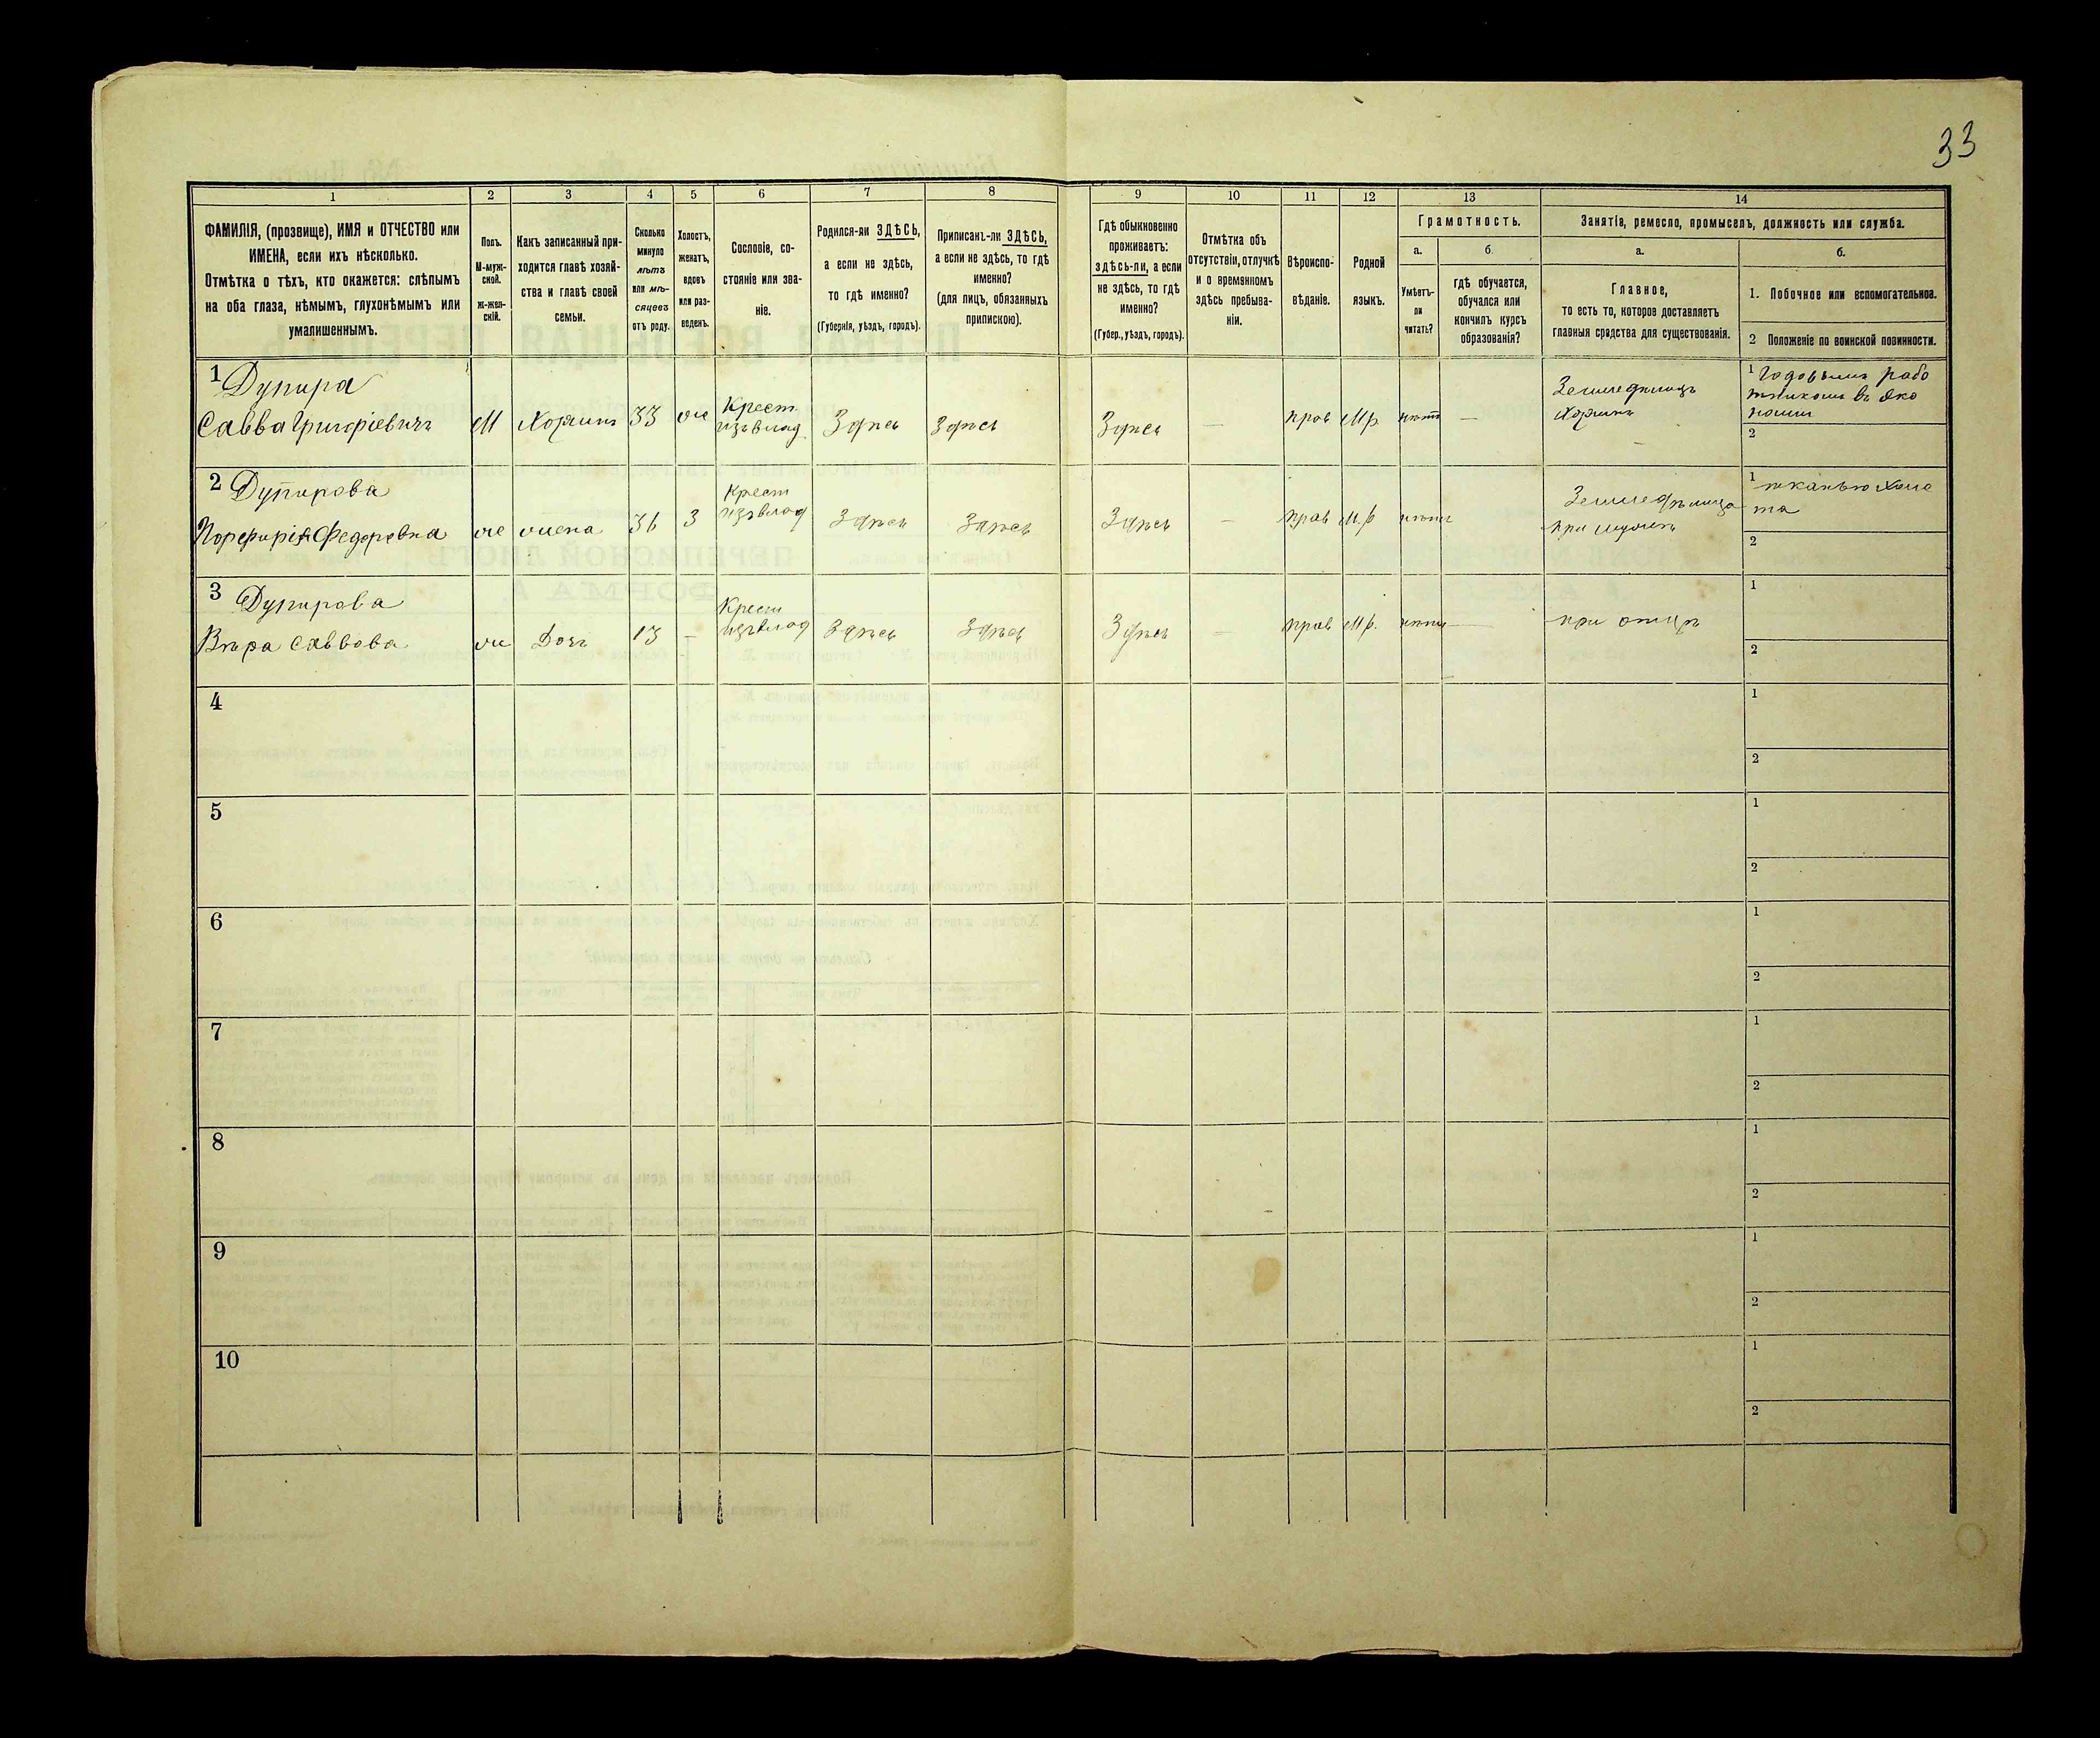 33
1
2
3
4
5
6
7
8
9
10
11
12
13
14
ФАМИЛІЯ, (прозвище), ИМЯ и ОТЧЕСТВО или
ИМЕНА, если ихъ нѣсколько.
Отмѣтка о тѣхъ, кто окажется: слѣпымъ
на оба глаза, нѣмымъ, глухонѣмымъ или
умалишеннымъ.
Полъ.
М-муж-
ской.
Ж-жен-
скій.
Какъ записанный при-
ходится главѣ хозяй-
ства и главѣ своей
семьи.
Сколько
минуло
лѣтъ
или мѣ-
сяцевъ
отъ роду.
Холостъ,
женатъ,
вдовъ
или раз-
веденъ.
Сословіе, со-
стояніе или зва-
ніе.
Родился-ли ЗДѢСЬ,
а если не здѣсь,
то гдѣ именно?
(Губернія, уѣздъ, городъ).
Приписанъ-ли ЗДѢСЬ,
а если не здѣсь, то гдѣ
именно?
(для лицъ, обязанныхъ
припискою).
Гдѣ обыкновенно
проживаетъ:
здѣсь-ли, а если
не здѣсь, то гдѣ
именно?
(Губер., уѣздъ, городъ).
Отмѣтка объ
отсутствіи, отлучкѣ
и о временномъ
здѣсь пребыва-
ніи.
Вѣроиспо-
вѣданіе.
Родной
языкъ.
Грамотность.
а.
Умѣетъ-
ли
читать?
б.
гдѣ обучается,
обучался или
кончилъ курсъ
образованія?
Занятіе, ремесло, промыселъ, должность или служба.
а.
Главное,
то есть то, которое доставляетъ
главныя средства для существованія.
б.
1. Побочное или вспомогательное.
2 Положеніе по воинской повинности.
1 Дупира
Савва Григоріевичъ
М
Хозяинъ
33
ж
Крест
изъ влад
Здѣсь
Здѣсь
Здѣсь
—
прав
Мр
нѣтъ
—
Земледѣлецъ
Хозяинъ
1 Годовымъ рабо
тникомъ въ Эко
номіи
2
2 Дупирова
Порфирія Федоровна
ж
жена
31
З
Крест
изъ влад
Здѣсь
Здѣсь
Здѣсь
—
прав
М.р
нѣтъ
Земледѣлица
при мужѣ
1 тканью холс
та
2
3 Дупирова
Вѣра Саввова
ж
Дочь
13
—
Крест
изъ влад
Здѣсь
Здѣсь
Здѣсь
—
прав
Мр.
нѣтъ
—
при отцѣ
1
2
4
1
2
5
1
2
6
1
2
7
1
2
8
1
2
9
1
2
10
1
2